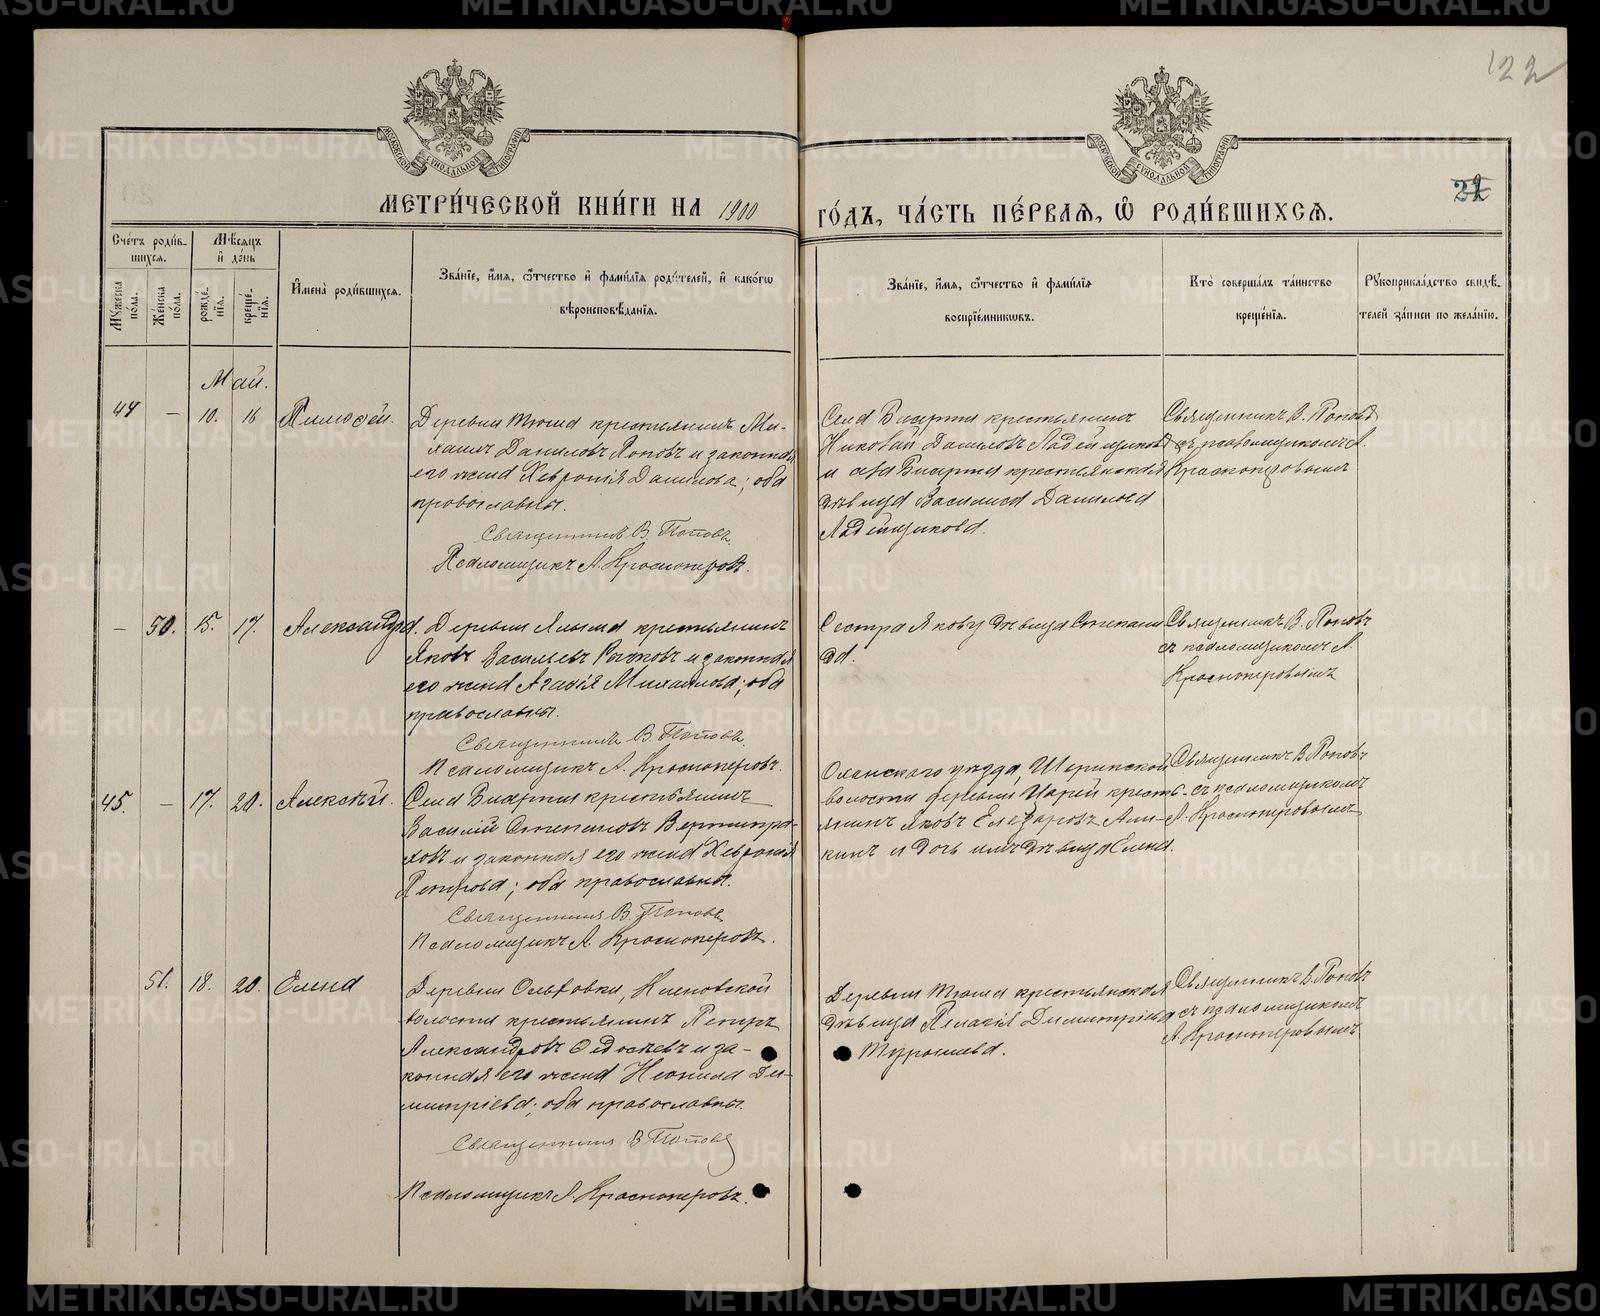 122
22
МОСКОВСКОЙ СУНОДАЛЬНОЙ ТИПОГРАФІИ
МОСКОВСКОЙ СУНОДАЛЬНОЙ ТИПОГРАФІИ
МЕТРИ́ЧЕСКОЙ КНИ́ГИ НА 1900
ГО́ДЪ, ЧА́СТЬ ПЕ́РВАЯ, Ѡ РОДИ́ВШИХСЯ.
Счётъ роди́в-
шихся.
Му́жеска по́ла.
Же́нска по́ла.
Мѣ́сяцъ
и҆ де́нь
рожде́нїя.
креще́нїя.
И҆мена̀ роди́вшихся.
Зва́нїе, и҆́мя, ѻ҆́тчество и҆ фами́лїя роди́телей, и҆ како́гѡ
вѣроисповѣ́данїя.
Зва́нїе, и҆́мя, ѻ҆́тчество и҆ фами́лїя
воспрїе́мниковъ.
Кто̀ соверша́лъ та́инство
креще́нїя.
Рꙋкоприкла́дство свидѣ́-
телей за́писи по жела́нїю.
Май.
44
—
10.
16
Тимофей.
Деревни Тюша крестьянинъ Ми-
хаилъ Даниловъ Поповъ и законная
его жена Хевронія Данилова; оба
православны.
Священникъ В. Поповъ.
Псаломщикъ А. Красноперовъ.
Села Бисерти крестьянинъ
Николай Даниловъ Ладейщиковъ
и села Бисерти крестьянская
дѣвица Василиса Данилова
Ладейщикова.
Священникъ В. Поповъ
съ псаломщикомъ А.
Красноперовымъ
—
50.
15.
17.
Александра.
Деревни Алыма крестьянинъ
Яковъ Васильевъ Рачковъ и законная
его жена Агафія Михаилова; оба
православны.
Священникъ В. Поповъ.
Псаломщикъ А. Красноперовъ.
Сестра Якову дѣвица Степани-
да.
Священникъ В. Поповъ
съ псаломщикомъ А.
Красноперовымъ
45.
—
17.
20.
Алексѣй.
Села Бисерти крестьянинъ
Василій Степановъ Вертипра-
ховъ и законная его жена Хевронія
Петрова; оба православны.
Священникъ В. Поповъ
Псаломщикъ А. Красноперовъ.
Оханскаго уѣзда, Шеринской
волости деревни Царей кресть-
янинъ Яковъ Елезаровъ Али-
кинъ и дочь имъ дѣвица Елена.
Священникъ В. Поповъ
съ псаломщикомъ
А. Красноперовымъ
51.
18.
20.
Елена
Деревни Ольховки, Кленовской
волости крестьянинъ Петръ
Александровъ Ѳедосѣевъ и за-
конная его жена Неонила Ди-
митріева; оба православны.
Священникъ В. Поповъ
Псаломщикъ А. Красноперовъ.
Деревни Тюша крестьянская
дѣвица Пелагія Димитріева
Турышева.
Священникъ В. Поповъ
съ псаломщикомъ
А. Красноперовымъ
METRIKI.GASO-URAL.RU